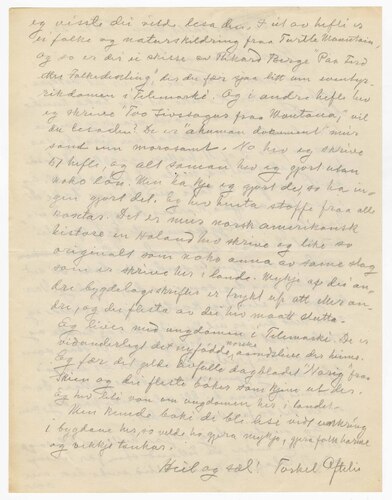 eg visste du vilde lesa dei. I eit av hefti er
ei folke og naturskildring fraa Turtle Mountain,
og so er dei ei skisse av Rikard Berge "Paa Ferd
etter Folkedikting" der du fær sjaa litt um eventyr-
rikdomen i Telemarki. Og i andre hefte hev
eg skrive "Tvo livssogur fraa Montana", vil
du lesa dei? De er "ahuman dokument" mir
sand enn morosamt. No hev eg skrive
67 hefte, og alt saman hev eg gjort utan
noko løn. Men ha ikje eg gjort de, so ha in-
gen gjort del. Eg hev henta stoffe fraa alle
kantar. Det er mus norsk amerikansk
historie som Holand hev skrive og like so
originalt som noko anna av same slag
som er skrive her i lande. Mykje av dei an-
dre bygdelagsskrifter er trykt up att etter an-
dre, og dei flesta av dei hev maatt slutta.
Eg liver med ungdomen i Telemarki. De er
vidunderlegt det nyfødde norske aandsleve der heime.
Eg fær det gilde bivfulle dagbladet "Varig" fraa
Skien og dei flesta bøker som kjem ut der.
Og hev liti von um ungdomen her i landet.
Men kunde boki di bli lese vidt umkring
i bygdane her, so vilde ho gjera mykje, gjera folk harme
og vekkje tankar.
Heil og sæl! Torkel Oftelie